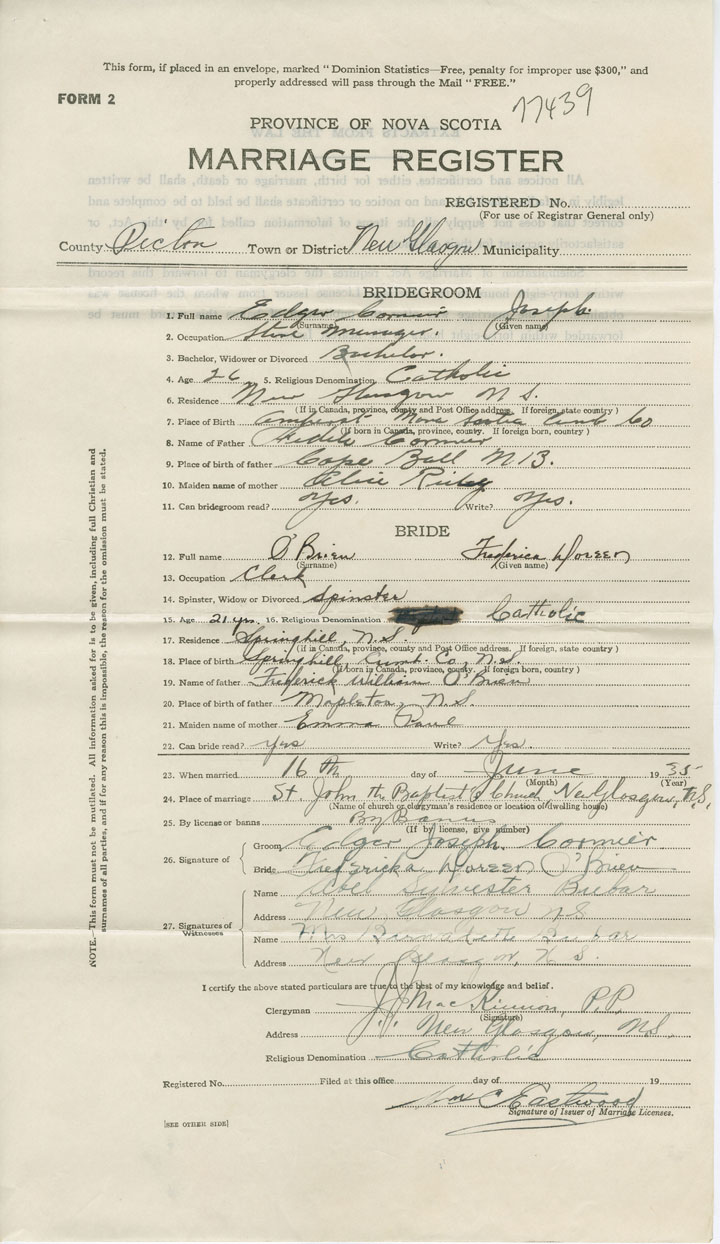 This form, if placed in an envelope, marked "Dominion Statistics—Free, penalty for improper use $300," and
properly addressed will pass through the Mail "FREE."
FORM 2
77439
PROVINCE OF NOVA SCOTIA
MARRIAGE REGISTER
REGISTERED No.
(For use of Registrar General only)
County Pictou Town or District New Glasgow Municipality
BRIDEGROOM
1. Full name Edgar Cormier Joseph
(Surname) (Given name)
2. Occupation Store Manager.
3. Bachelor, Widower or Divorced Bachelor.
4. Age 26 5. Religious Denomination Catholic
6. Residence New Glasgow N S.
(If in Canada, province, county and Post Office address. If foreign, state country)
7. Place of Birth Amherst Nova Scotia Cumb Co
(If born in Canada, province, county. If foreign born, country)
8. Name of Father Cormier
9. Place of birth of father Cape Bald N B.
10. Maiden name of mother Alice
11. Can bridegroom read? Yes. Write? Yes.
BRIDE
12. Full name O'Brien Frederica Doreen
(Surname) (Given name)
13. Occupation Clerk
14. Spinster, Widow or Divorced Spinster
15. Age 21 yrs. 16. Religious Denomination Catholic
17. Residence Springhill, N.S.
(If in Canada, province, county and Post Office address. If foreign, state country)
18. Place of birth Springhill, Cumb. Co, N.S.
(If born in Canada, province, county. If foreign born, country)
19. Name of father Frederick William O'Brien
20. Place of birth of father Mapleton, N.S.
21. Maiden name of mother Emma Paul
22. Can bride read? Yes Write? Yes.
23. When married 16th day of June 1935
(Month) (Year)
24. Place of marriage St John the Baptist's Church New Glasgow, N.S.
(Name of church or clergyman's residence or location of dwelling house)
25. By license or banns By Banns
(If by license, give number)
26. Signature of Groom Edgar Joseph Cormier
Bride Fredericka Doreen O'Brien
27. Signatures of Witnesses
Name Sylvester Bubar
Address New Glasgow N S
Name Mrs Bubar
Address New Glasgow, N. S.
I certify the above stated particulars are true to the best of my knowledge and belief.
Clergyman J. J. MacKinnon, P.P.
(Signature)
Address New Glasgow, N.S.
Religious Denomination Catholic
Registered No. Filed at this office day of 19
C Eastwood
Signature of Issuer of Marriage Licenses.
[SEE OTHER SIDE]
NOTE.—This form must not be mutilated. All information asked for is to be given, including full Christian and
surnames of all parties, and if for any reason this is impossible, the reason for the omission must be stated.